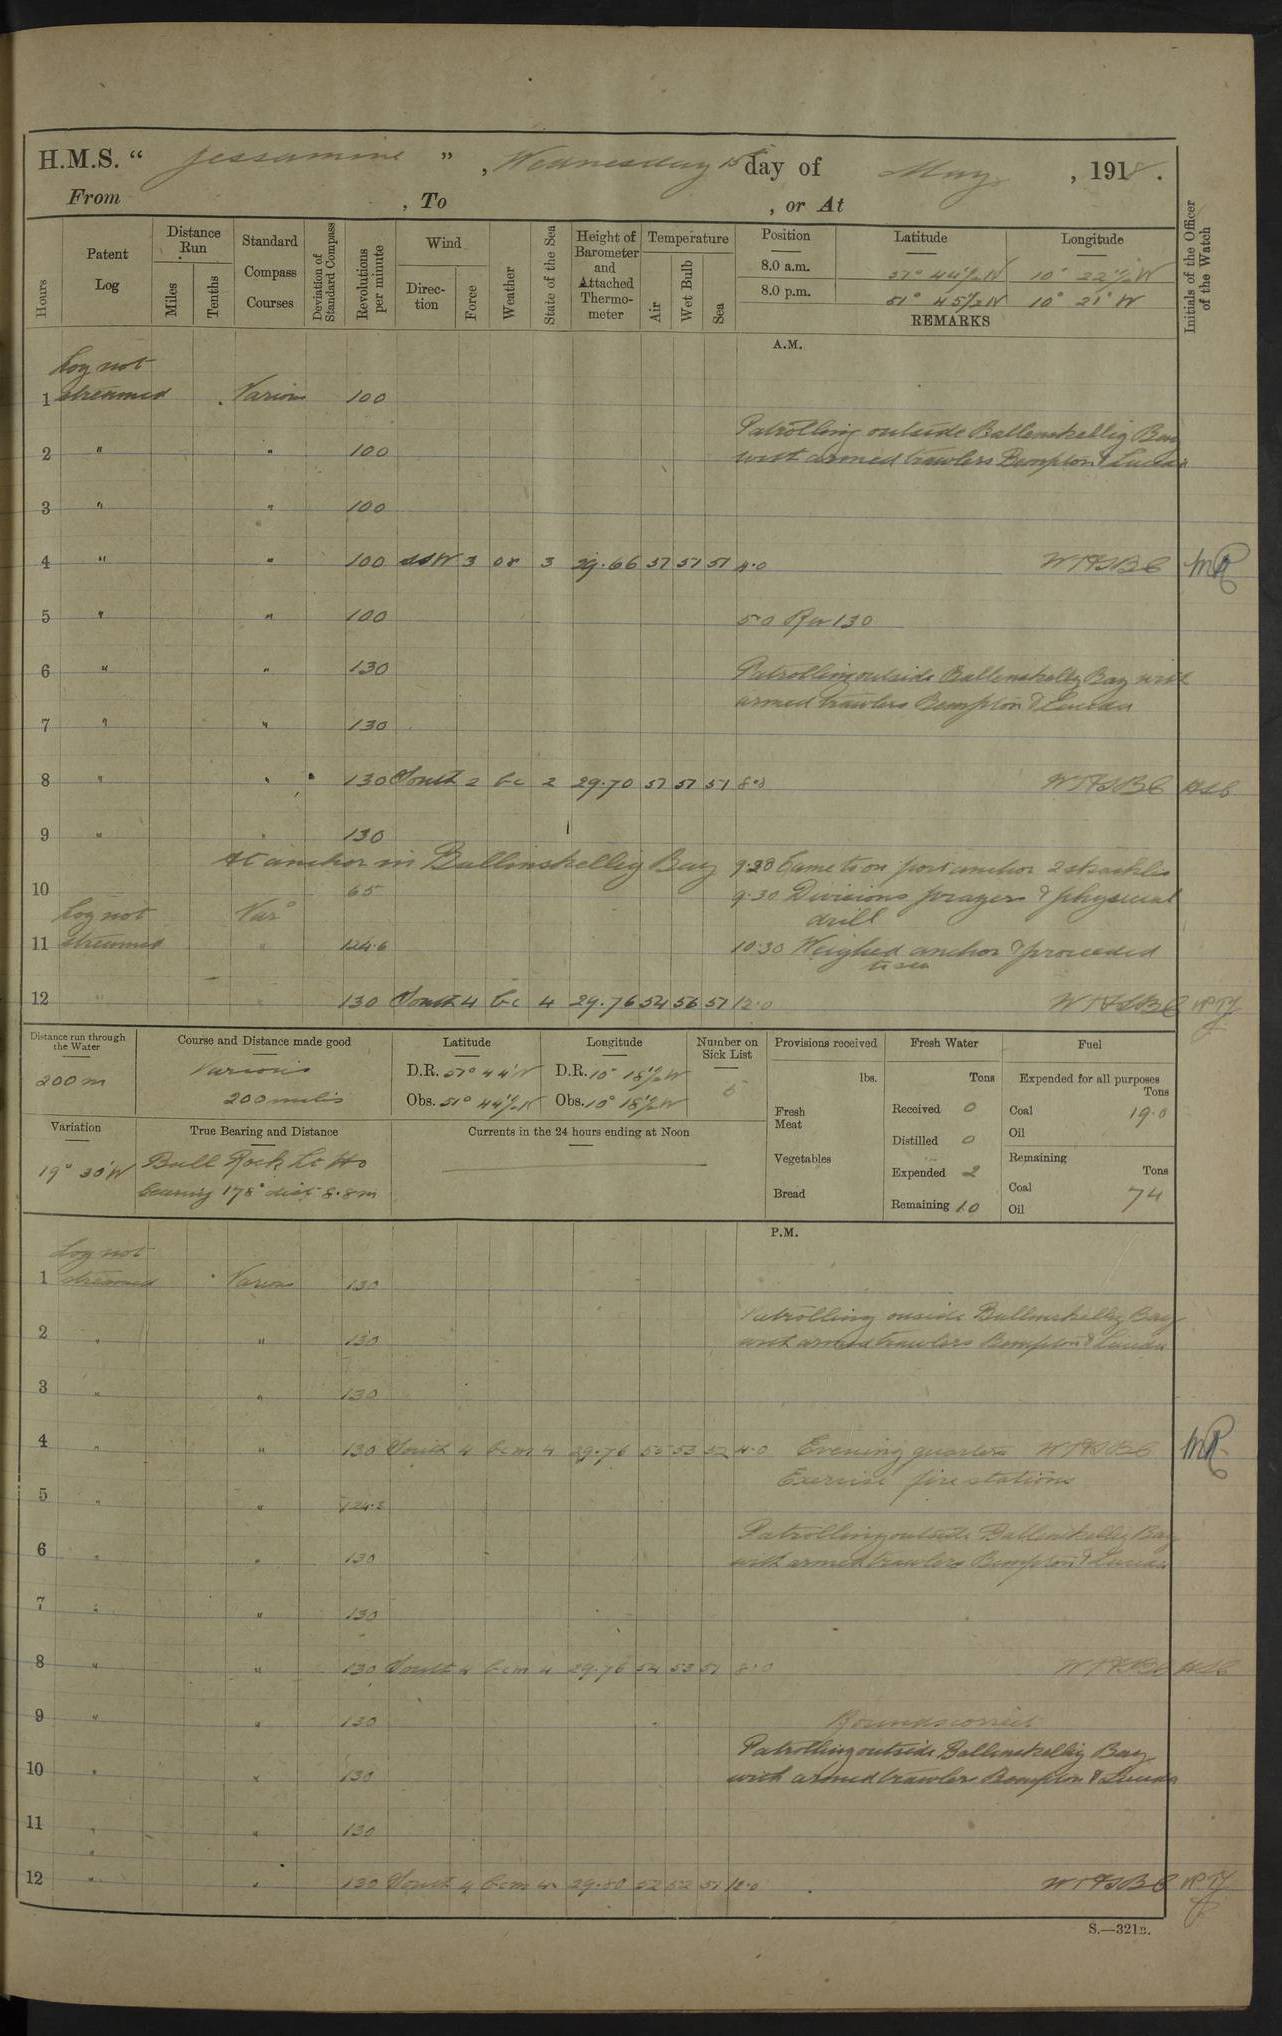 H.M.S. “ Jessamine ”, Wednesday 15th day of May, 1918.
From , To , or At
Hours
Patent Log
Distance Run
Miles
Tenths
Standard Compass Courses
Deviation of Standard Compass
Revolutions per minute
Wind
Direction
Force
Weather
State of the Sea
Height of Barometer and Attached Thermometer
Temperature
Air
Wet Bulb
Sea
Position
8.0 a.m.
8.0 p.m.
Latitude
51° 44½'N
51° 45½'N
Longitude
10° 22½'W
10° 21' W
REMARKS
Initials of the Officer of the Watch
A.M.
Log not
1 streamed Various 100
Patrolling outside Ballinskellig Bay
2 " " 100 with armed trawlers Bempton &
3 " " 100
4 " " 100 SSW 3 or 3 29.66 51 51 51 4.0 WT&SBC MR
5 " " 100 5.0 Rev 130
6 " " 130 Patrolling outside Ballinskellig Bay with
armed trawlers Bempton &
7 " " 130
8 " " 130 South 2 bc 2 29.70 51 51 51 8.0 WT&SBC
9 " " 130
At anchor in Ballinskellig Bay 9.20 Came to on port anchor 2 shackles
10 65 9.30 Divisions prayers & physical
Log not Var° drill
11 streamed " 124.6 10.30 Weighed anchor & proceeded
to sea
12 " " 130 South 4 bc 4 29.76 54 56 51 12.0 WT&SBC
Distance run through the Water
200 m
Course and Distance made good
Various
200 miles
Latitude
D.R. 51° 44'N
Obs. 51° 44½'N
Longitude
D.R. 10° 18½'W
Obs. 10° 18½'W
Number on Sick List
5
Provisions received
lbs.
Fresh Meat
Vegetables
Bread
Fresh Water
Tons
Received 0
Distilled 0
Expended 2
Remaining 10
Fuel
Expended for all purposes
Tons
Coal 19.0
Oil
Remaining
Tons
Coal 74
Oil
Variation
19° 30'W
True Bearing and Distance
Bull Rock Lt Ho
bearing 178° dist 8.8m
Currents in the 24 hours ending at Noon
P.M.
Log not
1 streamed Various 130
Patrolling outside Ballinskellig Bay
2 " " 130 with armed trawlers Bempton &
3 " " 130
4 " " 130 South 4 bcm 4 29.76 55 53 52 4.0 Evening quarters WT&SBC MR
Exercise fire stations
5 " " 124.2
Patrolling outside Ballinskellig Bay
6 " " 130 with armed trawlers Bempton &
7 " " 130
8 " " 130 South 4 bcm 4 29.76 54 53 51 8.0 WT&SBC
9 " " 130 Rounds correct
Patrolling outside Ballinskellig Bay
10 " " 130 with armed trawlers Bempton &
11 " " 130
12 " " 130 South 4 bcm 4 29.80 52 52 51 12.0 WT&SBC
S.—321B.